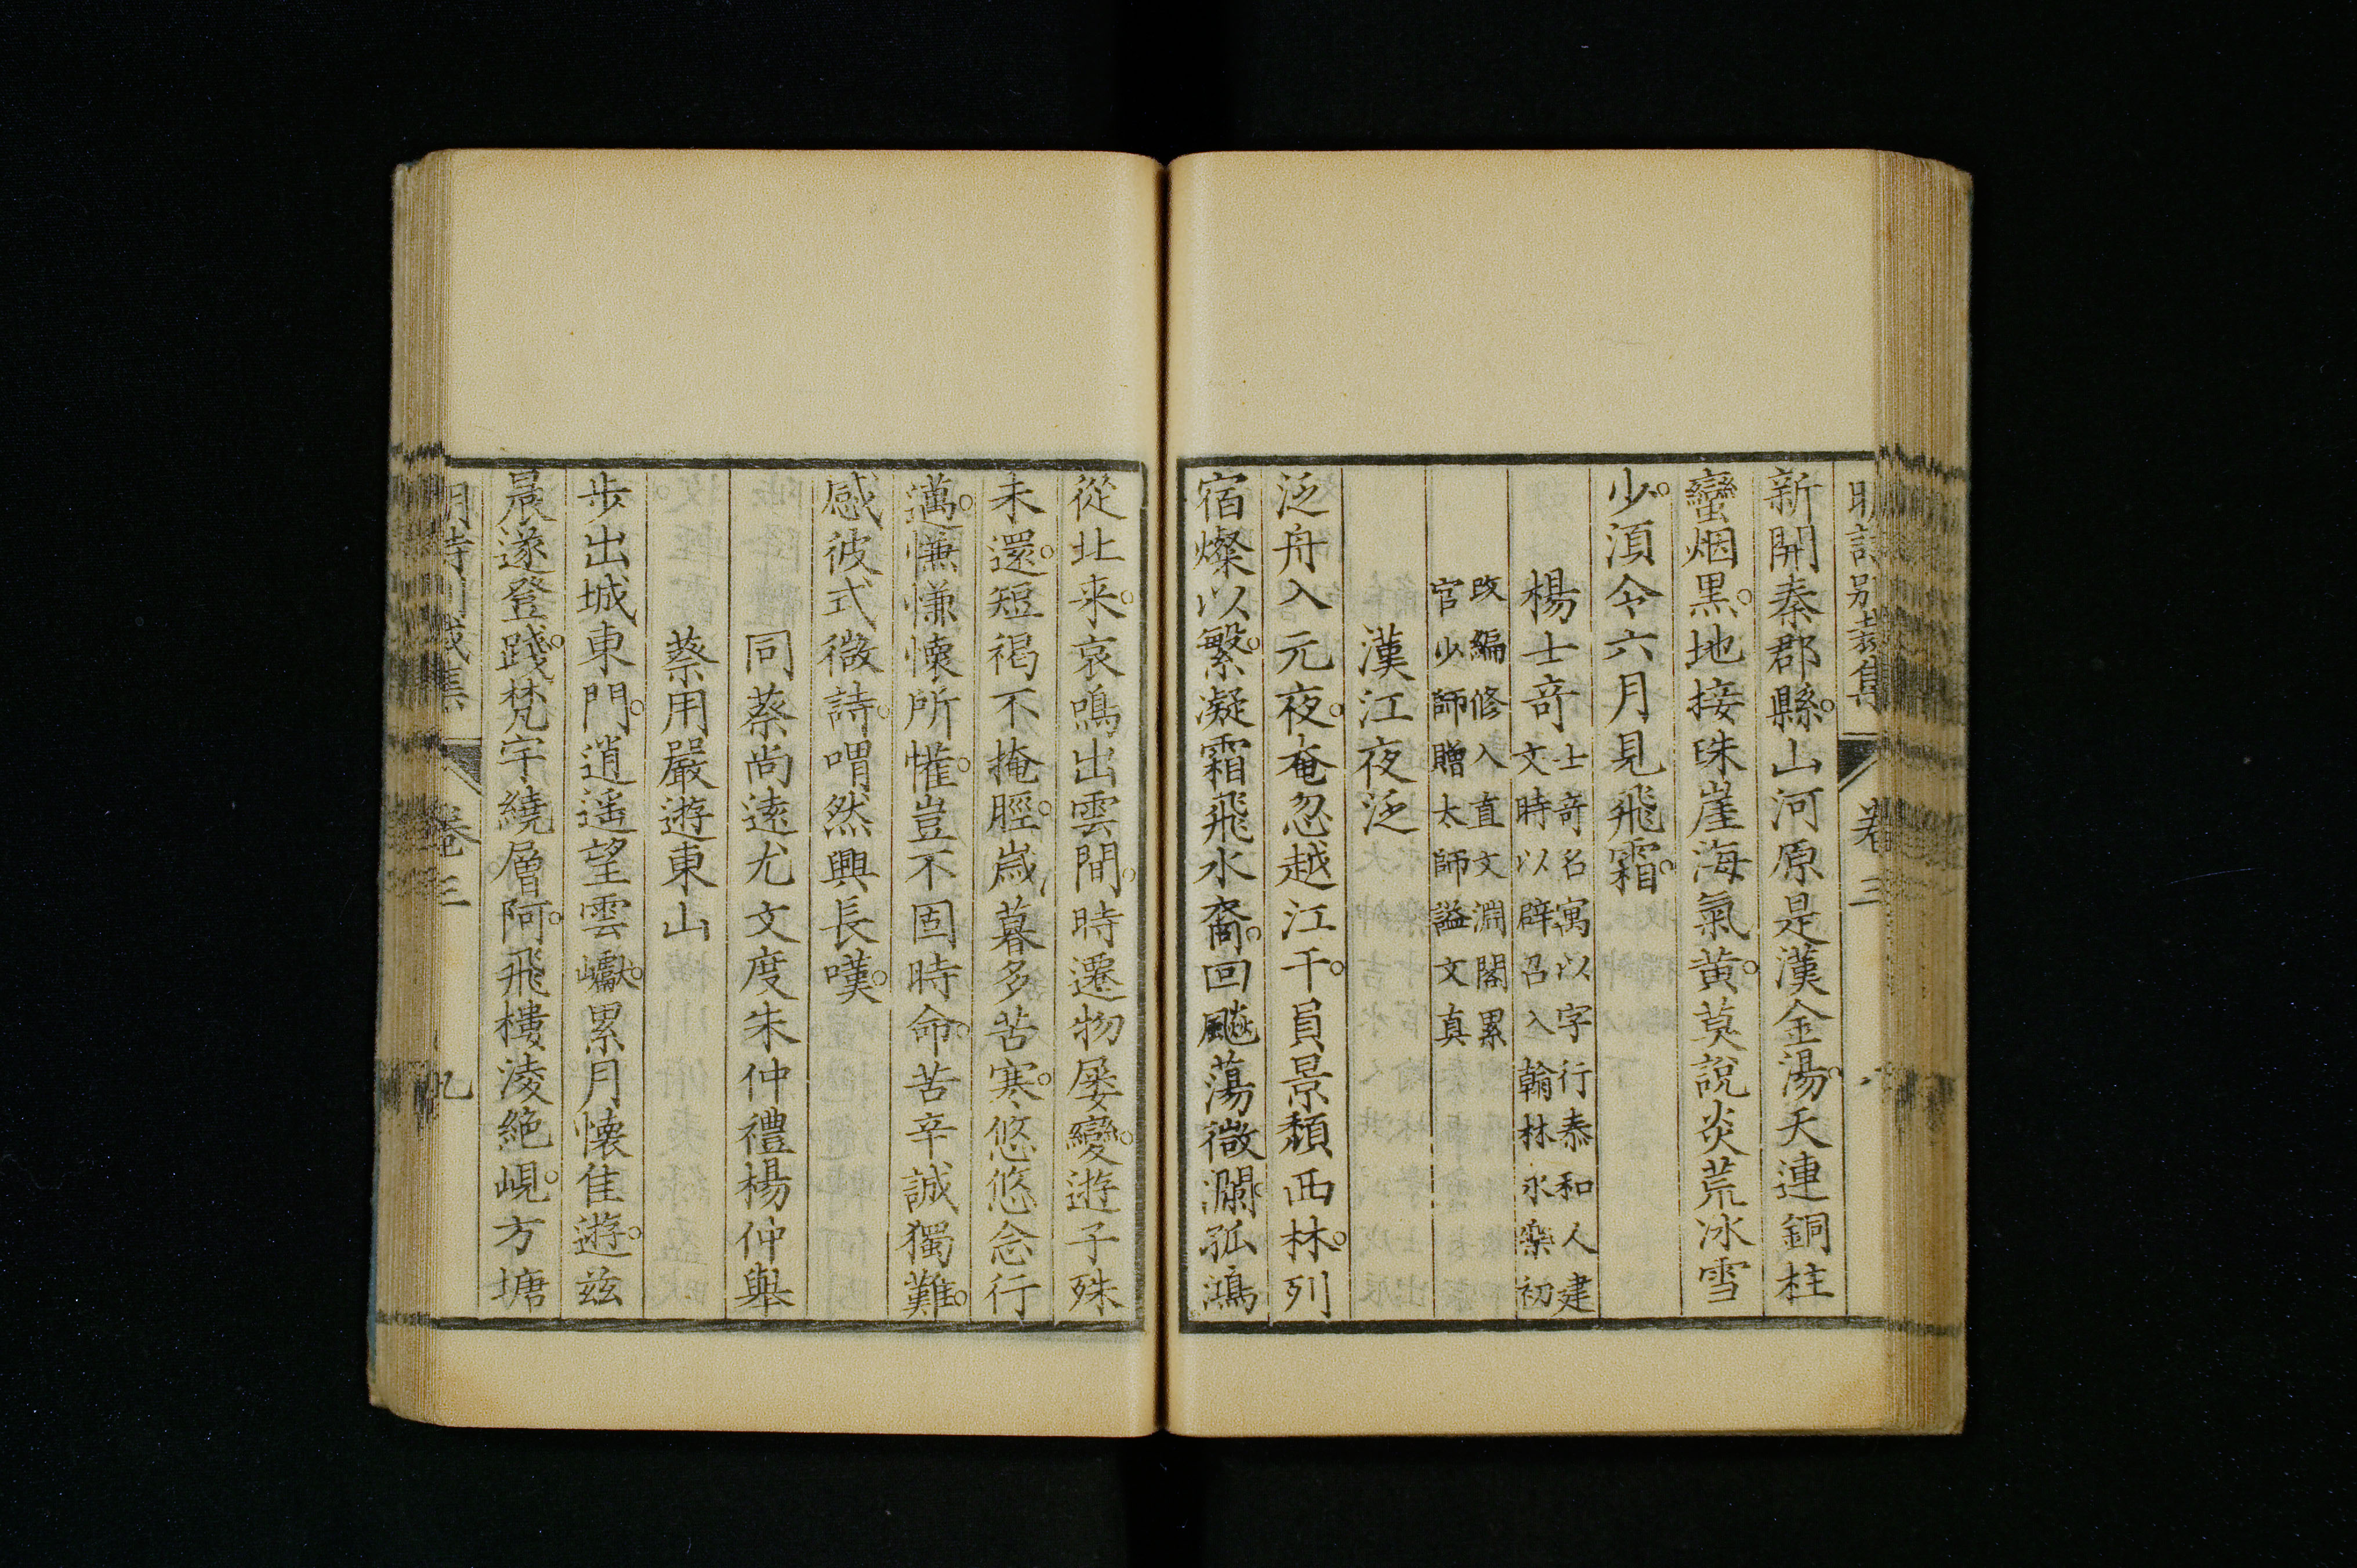 明詩別裁集 卷三 八
新開秦郡縣。山河原是漢金湯。天連銅柱
蠻烟黑。地接珠崖海氣黃。莫說炎荒冰雪
少。須令六月見飛霜。
楊士竒 士竒名寓以字行泰和人建
文時以辟召入翰林永樂初
改編修入直文淵閣累
官少師贈太師謚文真
漢江夜泛
泛舟入元夜。奄忽越江干。員景頹西林。列
宿燦以繁。凝霜飛水裔。回飇蕩微瀾。孤鴻
從北来。哀鳴出雲間。時遷物屡變。遊子殊
未還。短褐不掩脛。歲暮多苦寒。悠悠念行
邁。慊慊懷所懽。豈不固時命。苦辛誠獨難。
感彼式微詩。喟然興長嘆。
同蔡尚逺尤文度朱仲禮楊仲舉
蔡用嚴遊東山
歩出城東門。逍遥望雲巘。累月懐佳遊。兹
晨遂登踐。梵宇繞層阿。飛樓淩絶峴。方塘
明詩別裁集 卷三 九